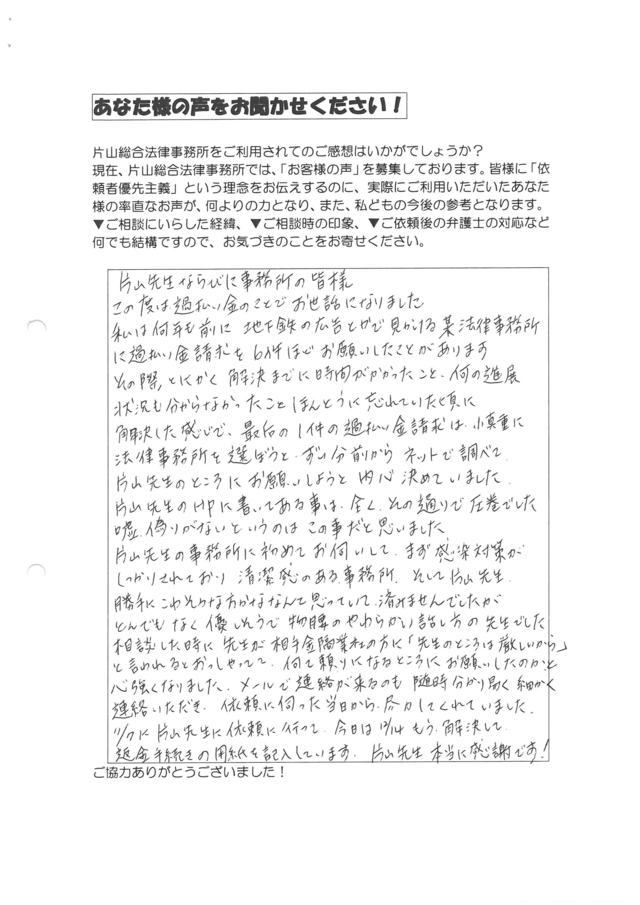 あなた様の声をお聞かせください！
片山総合法律事務所をご利用されてのご感想はいかがでしょうか？
現在、片山総合法律事務所では、「お客様の声」を募集しております。皆様に「依
頼者優先主義」という理念をお伝えするのに、実際にご利用いただいたあなた
様の率直なお声が、何よりの力となり、また、私どもの今後の参考となります。
▼ご相談にいらした経緯、▼ご相談時の印象、▼ご依頼後の弁護士の対応など
何でも結構ですので、お気づきのことをお寄せください。
片山先生ならびに事務所の皆様
この度は過払い金のことでお世話になりました
私は何年も前に 地下鉄の広告とかで見かける某法律事務所
に過払い金請求を6件ほどお願いしたことがあります
その際、とにかく 解決までに時間がかかったこと、何の進展
状況も分からなかったこと ほんとうに忘れていた頃に
解決した感じで、最后の1件の過払い金請求は、慎重に
法律事務所を選ぼうと、ずい分前から ネットで調べて、
片山先生のところにお願いしようと 内心 決めていました。
片山先生のHPに書いてある事は、全く、その通りで圧巻でした
嘘、偽りがないというのは この事だと思いました。
片山先生の事務所に初めて お伺いして、まず感染対策が
しっかりされており 清潔感のある事務所、そして片山先生、
勝手にこわそうな方かななんて思っていて、済みませんでしたが
とんでもなく 優しそうで 物腰のやわらかい話し方の先生でした
相談した時に 先生が 相手金融業社の方に「先生のところは厳しいから」
と言われるとおっしゃってて、何て頼りになるところにお願いしたのかと
心強くなりました、メールで連絡が来るのも 随時分かり易く細かく
連絡いただき、依頼に伺った当日から、尽力してくれていました。
11/7に片山先生に依頼に行って、今日は12/14 もう、解決して、
返金手続きの用紙を記入しています、片山先生 本当に感謝です！
ご協力ありがとうございました！